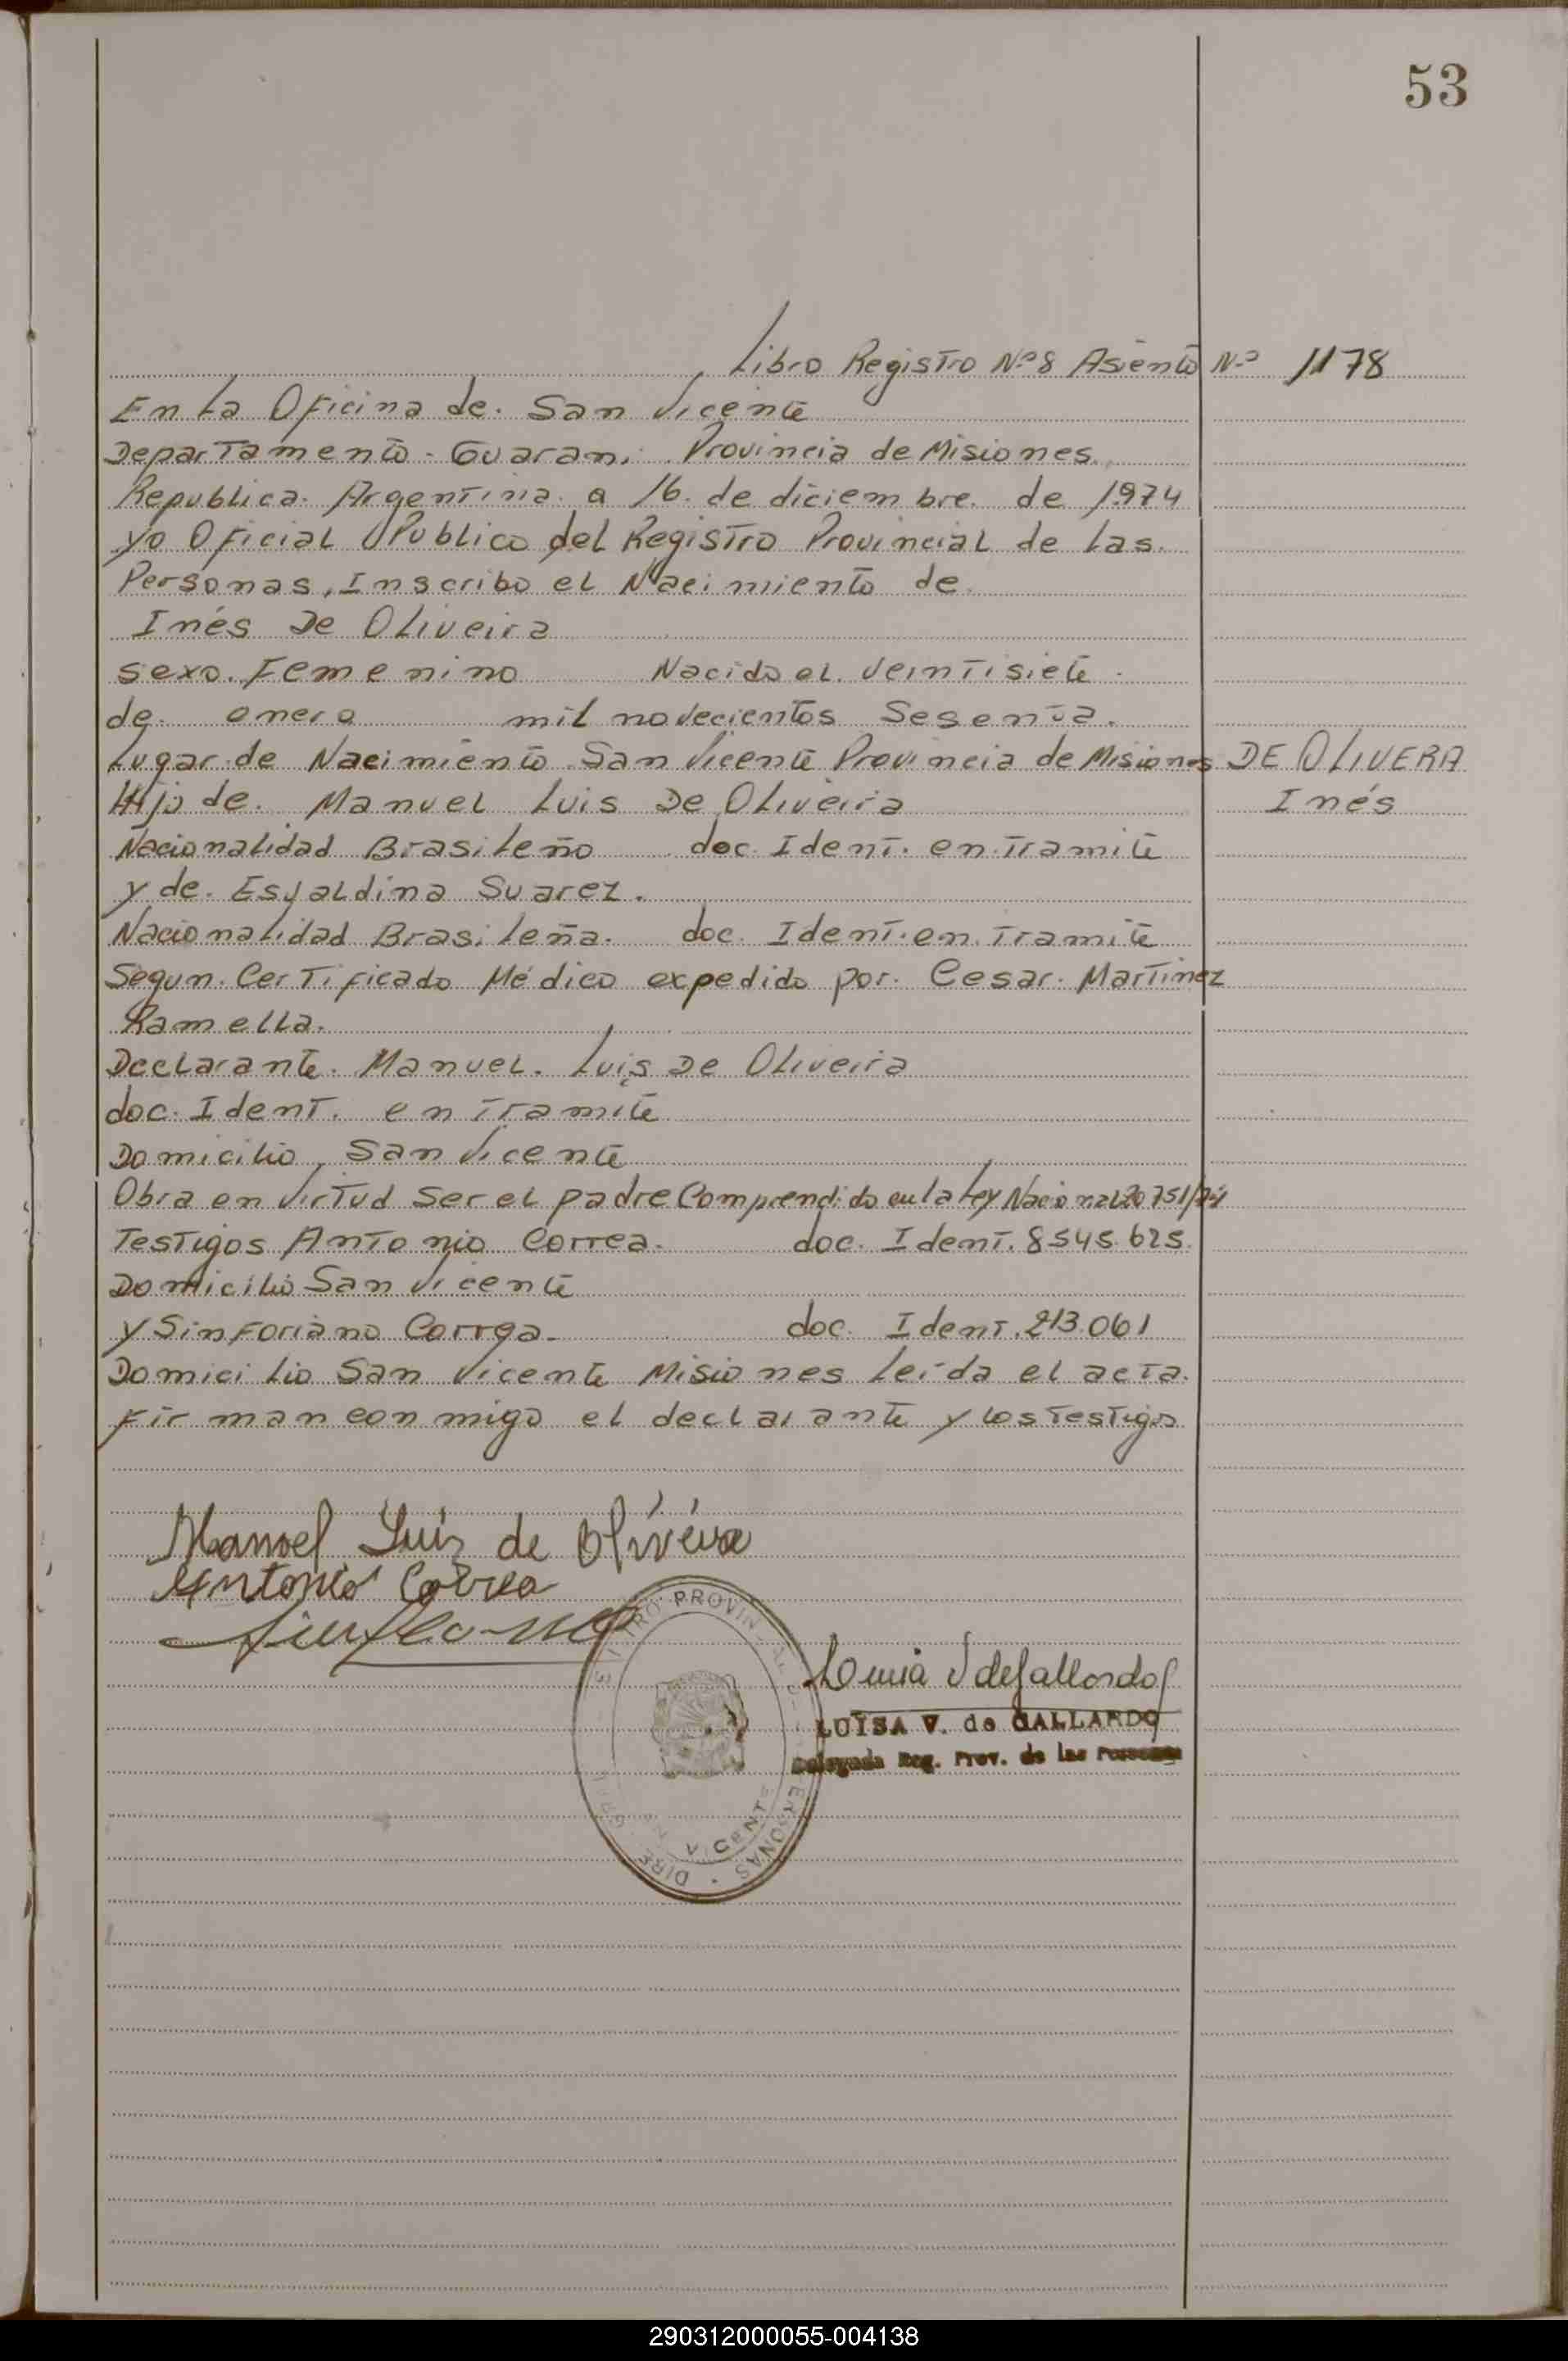 53
Libro Registro Nº 8 Asiento Nº 1178
En La Oficina de. San Vicente
Departamento - Guarani Provincia de Misiones.
Republica. Argentina. a 16. de diciembre. de 1974
yo Oficial Publico del Registro Provincial de Las.
Personas, Inscribo el Nacimiento de
Inés De Oliveira
sexo. Femenino Nacido el. Veintisiete.
de. enero mil novecientos Sesenta.
Lugar de Nacimiento San Vicente Provincia de Misiones
DE OLIVERA
Hijo de. Manuel Luis De Oliveira
Inés
Nacionalidad Brasileño doc. Ident. en tramite
y de. Esyaldina Suarez.
Nacionalidad Brasileña. doc. Ident. en. tramite
Segun. Certificado Médico expedido por. Cesar. Martinez
Ramella.
Declarante. Manuel. Luis De Oliveira
doc. Ident. en tramite
Domicilio, San Vicente
Obra en Virtud Ser el padre Comprendido en la Ley Nacional 20751/74
Testigos Antonio Correa. doc. Ident. 8545.625.
Domicilio San Vicente
y Sinforiano Correa. doc. Ident. 213.061
Domicilio San Vicente Misiones Leída el acta.
Firman conmigo el declarante y los testigos
Manoel Luiz de Oliveira
Antonio Correa
LUISA V. de GALLARDO
Delegada Reg. Prov. de las Personas
PROVIN
PERSONAS
DIRE GRAL
VICENTE
290312000055-004138